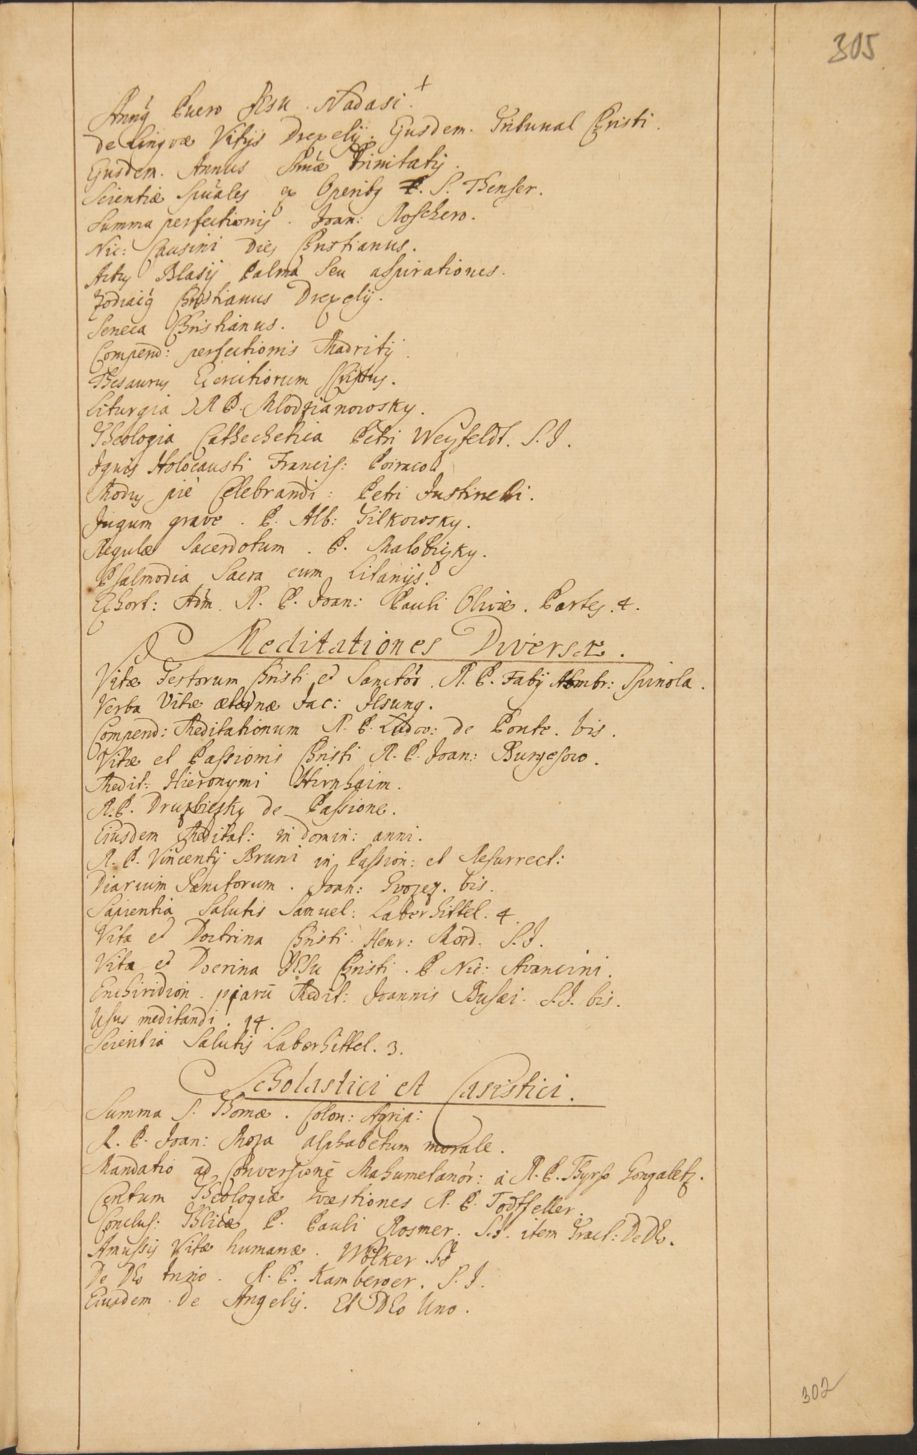 305
Annꝯ Puero JEsu Nadasi. +
de Lingvæ Vitijs Drexelij. Ejusdem. Tribunal Christi.
Ejusdem. Annus Smæ Trinitatis.
Scientiæ Spũales ex Operibꝯ P. S. Thenser.
Summa perfectionis. Joan: Roschero.
Nic: Causini Dies Christianus.
Actus Blasij Palma Seu aspirationes.
Zodiacꝯ Christianus Drexelij.
Seneca Christianus.
Compend: perfectionis Madritij
Thesaurus Exercitiorum
Liturgia A. P. Mlodzianowsky.
Theologia Cathechetica Petri Weyfeldt. S. J.
Ignis Holocausti Francis: Poiraco
Modus piè Celebrandi: Petri Justineli.
Jugum grave. P. Alb: Tilkowsky.
Regulæ Sacerdotum. P. Malobizky.
Psalmodia Sacra cum Litanijs.
Exhort: Adm. R. P. Joan: Pauli Olivæ. Partes. 4.
Meditationes Diversæ.
Vitæ Festorum Christi et Sanctoꝝ. R. P. Fabij Ambr: Spinola.
Verba Vitæ æternæ Jac: Ilsung.
Compend: Meditationum R. P. Ludov: de Ponte. bis.
Vitæ et Passionis Christi R. P. Joan: Burgesio.
Medit: Hieronymi Hirnhaim.
R. P. Druzbiczky de Passione.
Eiusdem Meditat: in Domin: anni.
R. P. Vincentij Bruni in Passion: et Resurrect:
Diarium Sanctorum. Joan: bis.
Sapientia Salutis Samuel: Laborhittel. 4.
Vita et Doctrina Christi Henr: Mord. S. J.
Vita et Docrina JEsu Christi. P. Nic: Avancini.
Enchiridion piarũ Medit: Joannis Busæi. S. J. bis.
Usus meditandi. 14.
Scientia Salutis Laborhittel. 3.
Scholastici et Casistici.
Summa S: Thomæ. Colon: Agrip:
R. P. Joan: Moya alphabetum morale.
Mandatio ad Conversionẽ Mahumetanoꝝ: à R. P. Thyrso Gonzaletz.
Centum Theologiæ Qvæstiones R. P. Todtfeller.
Conclus: Theolicæ P. Pauli Rosmer. S. J. item Tract: De DEo.
Amussis Vitæ humanæ. Wolker S. J
De DEo Trino. R. P. Kamberger. S. J.
Eiusdem de Angelis. Et DEo Uno.
302